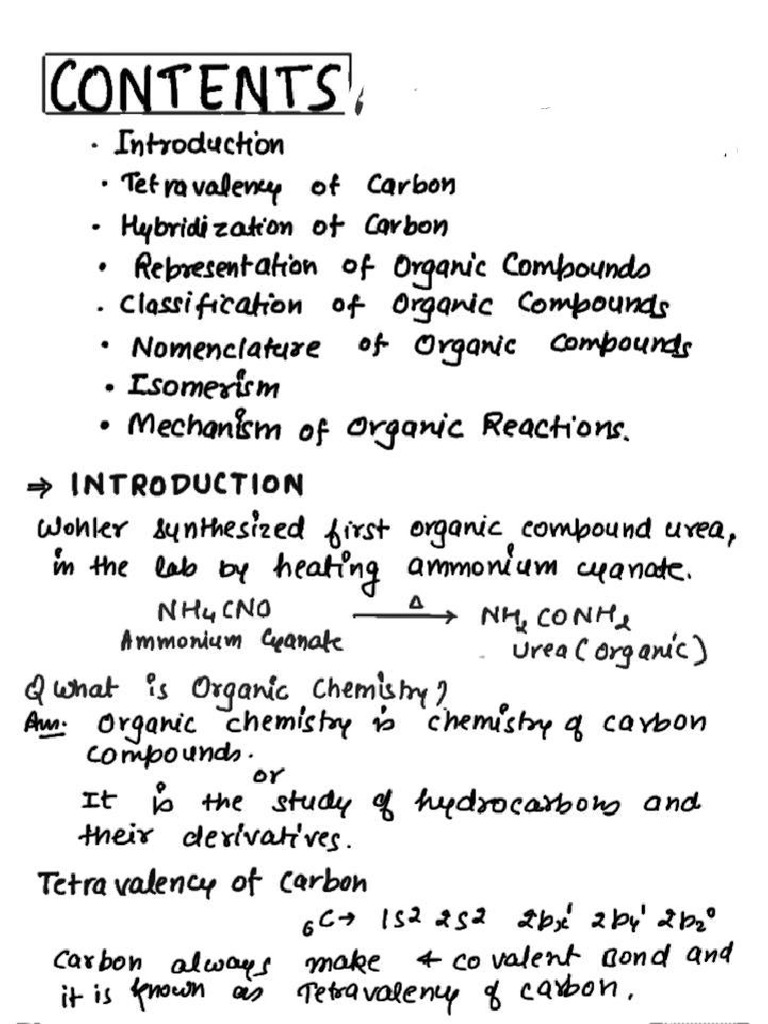 CONTENTS
· Introduction
· Tetravalency of Carbon
· Hybridization of Carbon
· Representation of Organic Compounds
· Classification of Organic Compounds
· Nomenclature of Organic Compounds
· Isomerism
· Mechanism of Organic Reactions.
⇒ INTRODUCTION
Wohler synthesized first organic compound urea,
in the lab by heating ammonium cyanate.
NH4CNO —Δ→ NH2CONH2
Ammonium Cyanate Urea (Organic)
Q What is Organic Chemistry?
Ans. Organic chemistry is chemistry of carbon
compounds.
or
It is the study of hydrocarbons and
their derivatives.
Tetravalency of Carbon
₆C→ 1s2 2s2 2px¹ 2py¹ 2pz⁰
Carbon always make 4 covalent Bond and
it is known as Tetravalency of carbon.